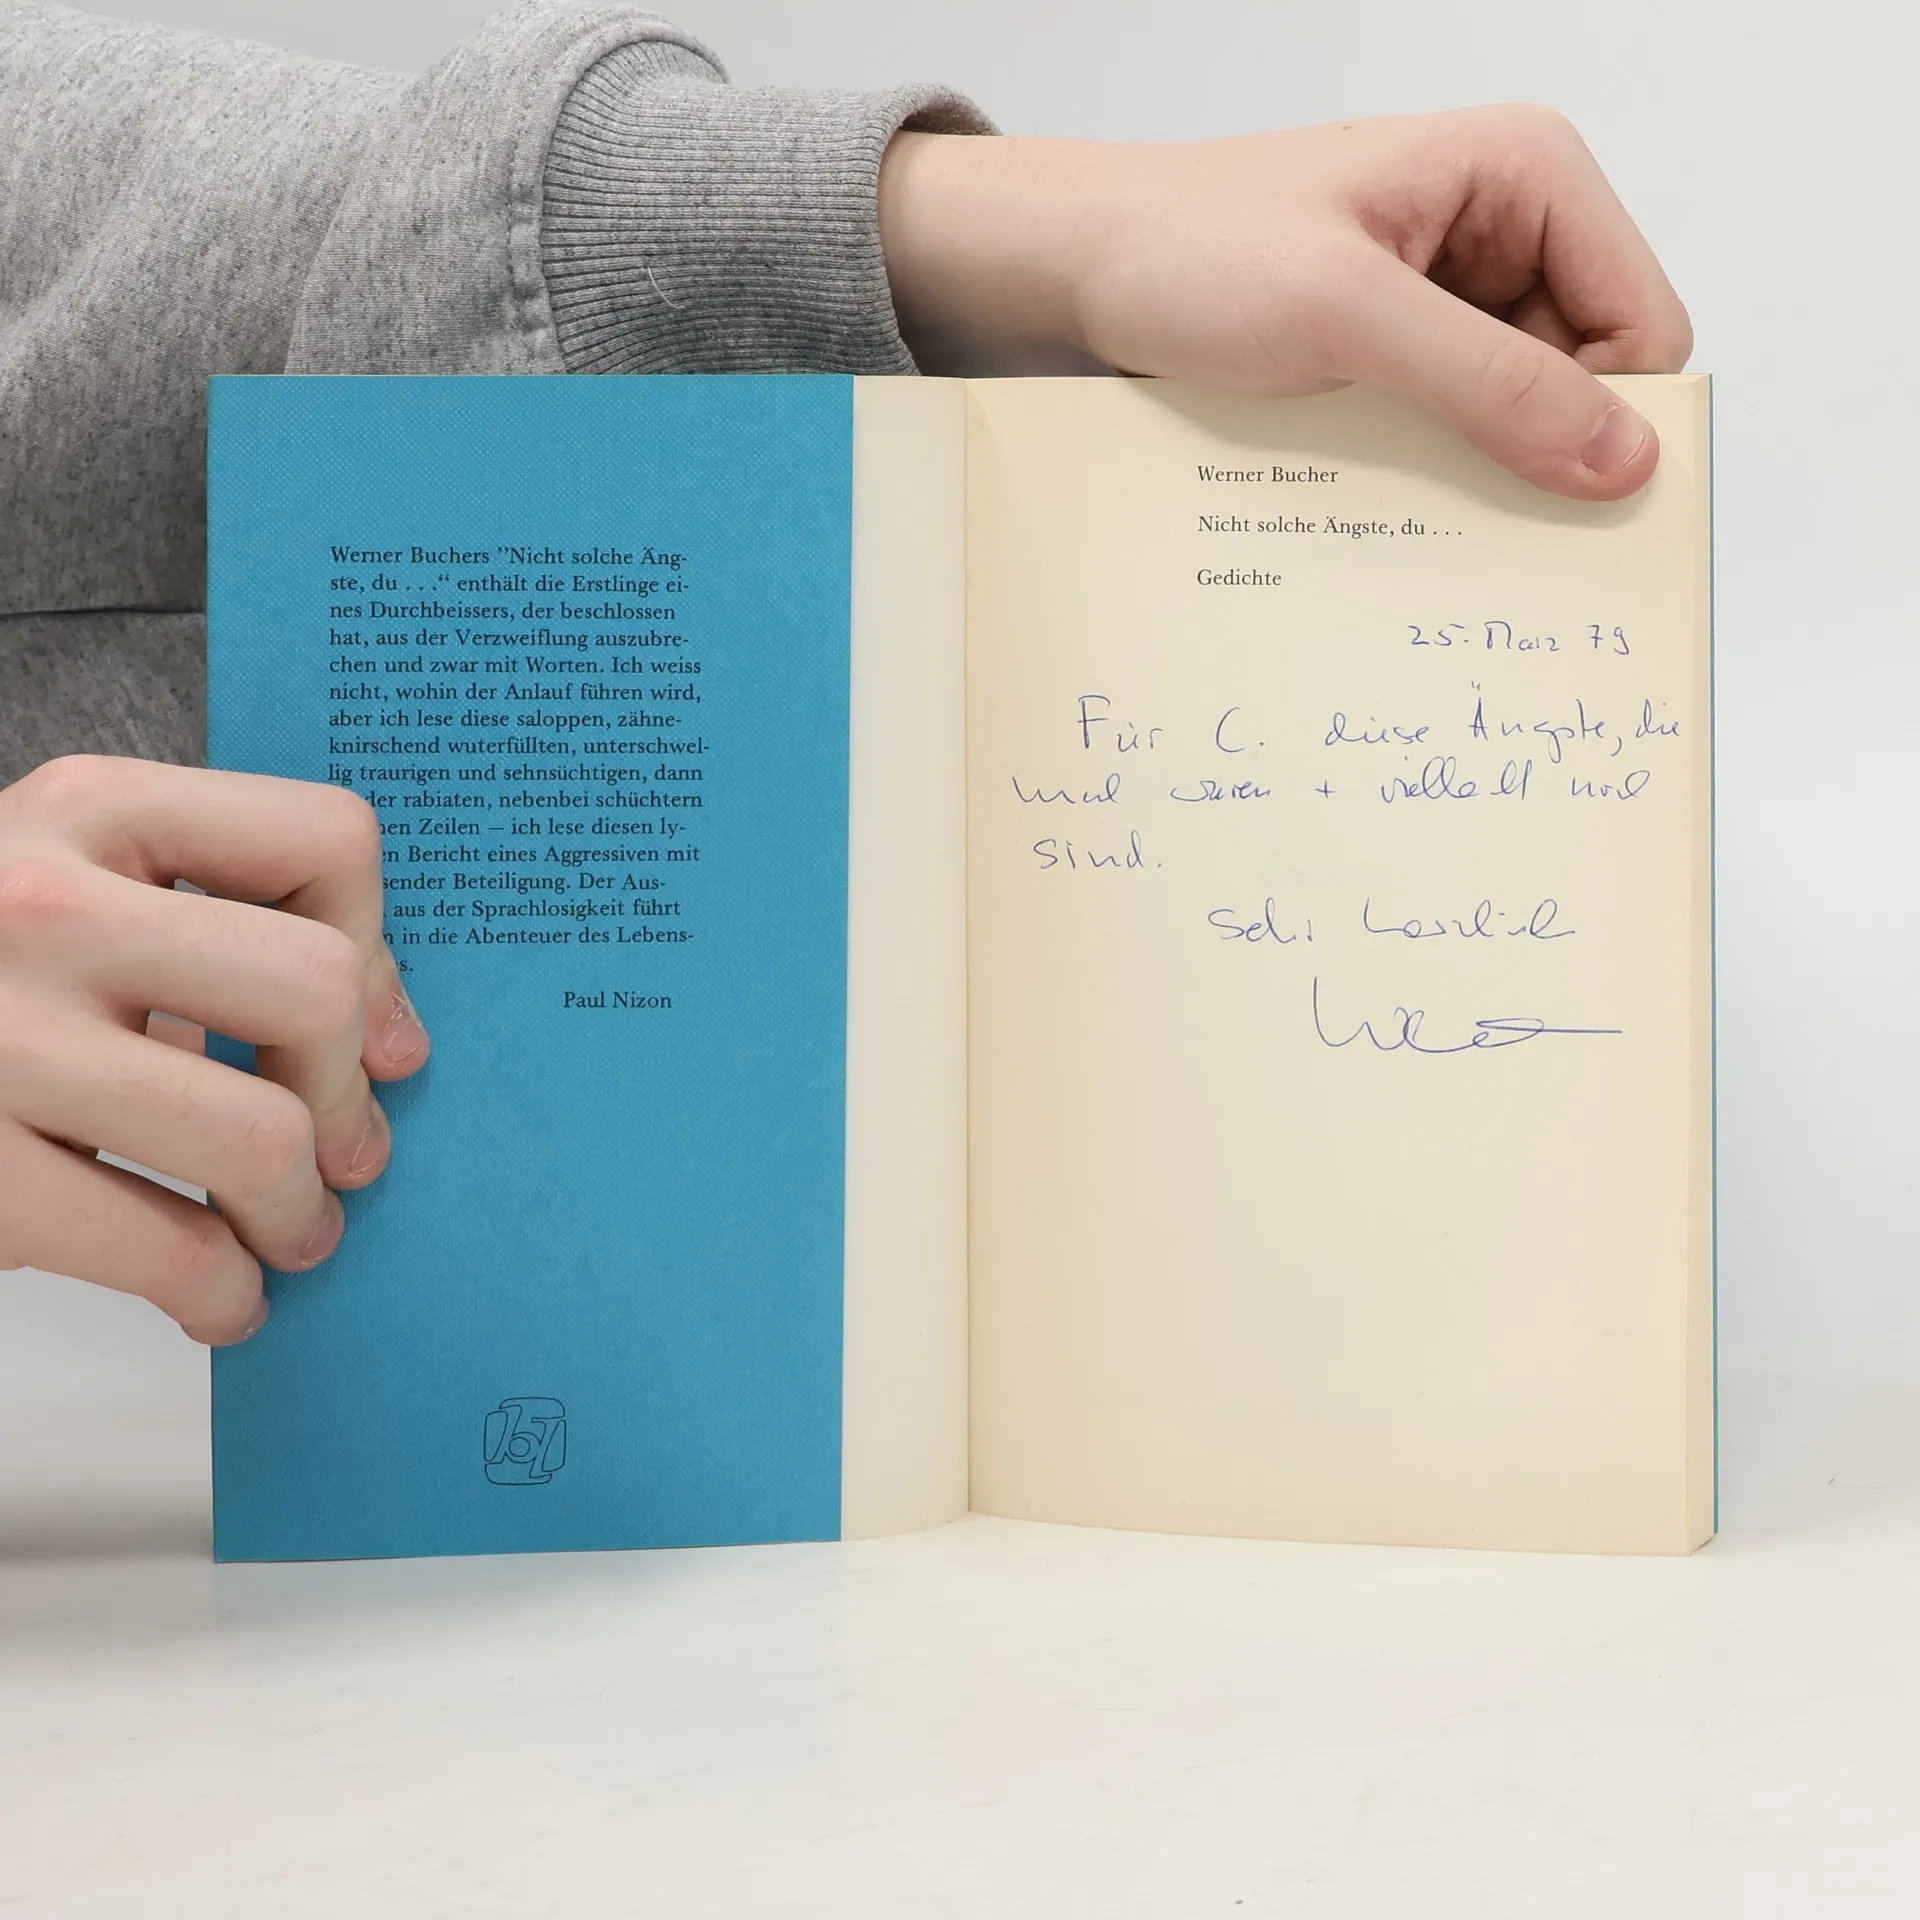 Werner Buchers ”Nicht solche Äng-
ste, du . . .“ enthält die Erstlinge ei-
nes Durchbeissers, der beschlossen
hat, aus der Verzweiflung auszubre-
chen und zwar mit Worten. Ich weiss
nicht, wohin der Anlauf führen wird,
aber ich lese diese saloppen, zähne-
knirschend wuterfüllten, unterschwel-
lig traurigen und sehnsüchtigen, dann
der rabiaten, nebenbei schüchtern
hen Zeilen — ich lese diesen ly-
n Bericht eines Aggressiven mit
sender Beteiligung. Der Aus-
aus der Sprachlosigkeit führt
n in die Abenteuer des Lebens-
s.
Paul Nizon
Werner Bucher
Nicht solche Ängste, du . . .
Gedichte
25. März 79
Für C. diese Ängste, die
mal waren + vielleicht noch
sind.
Sehr herzlich